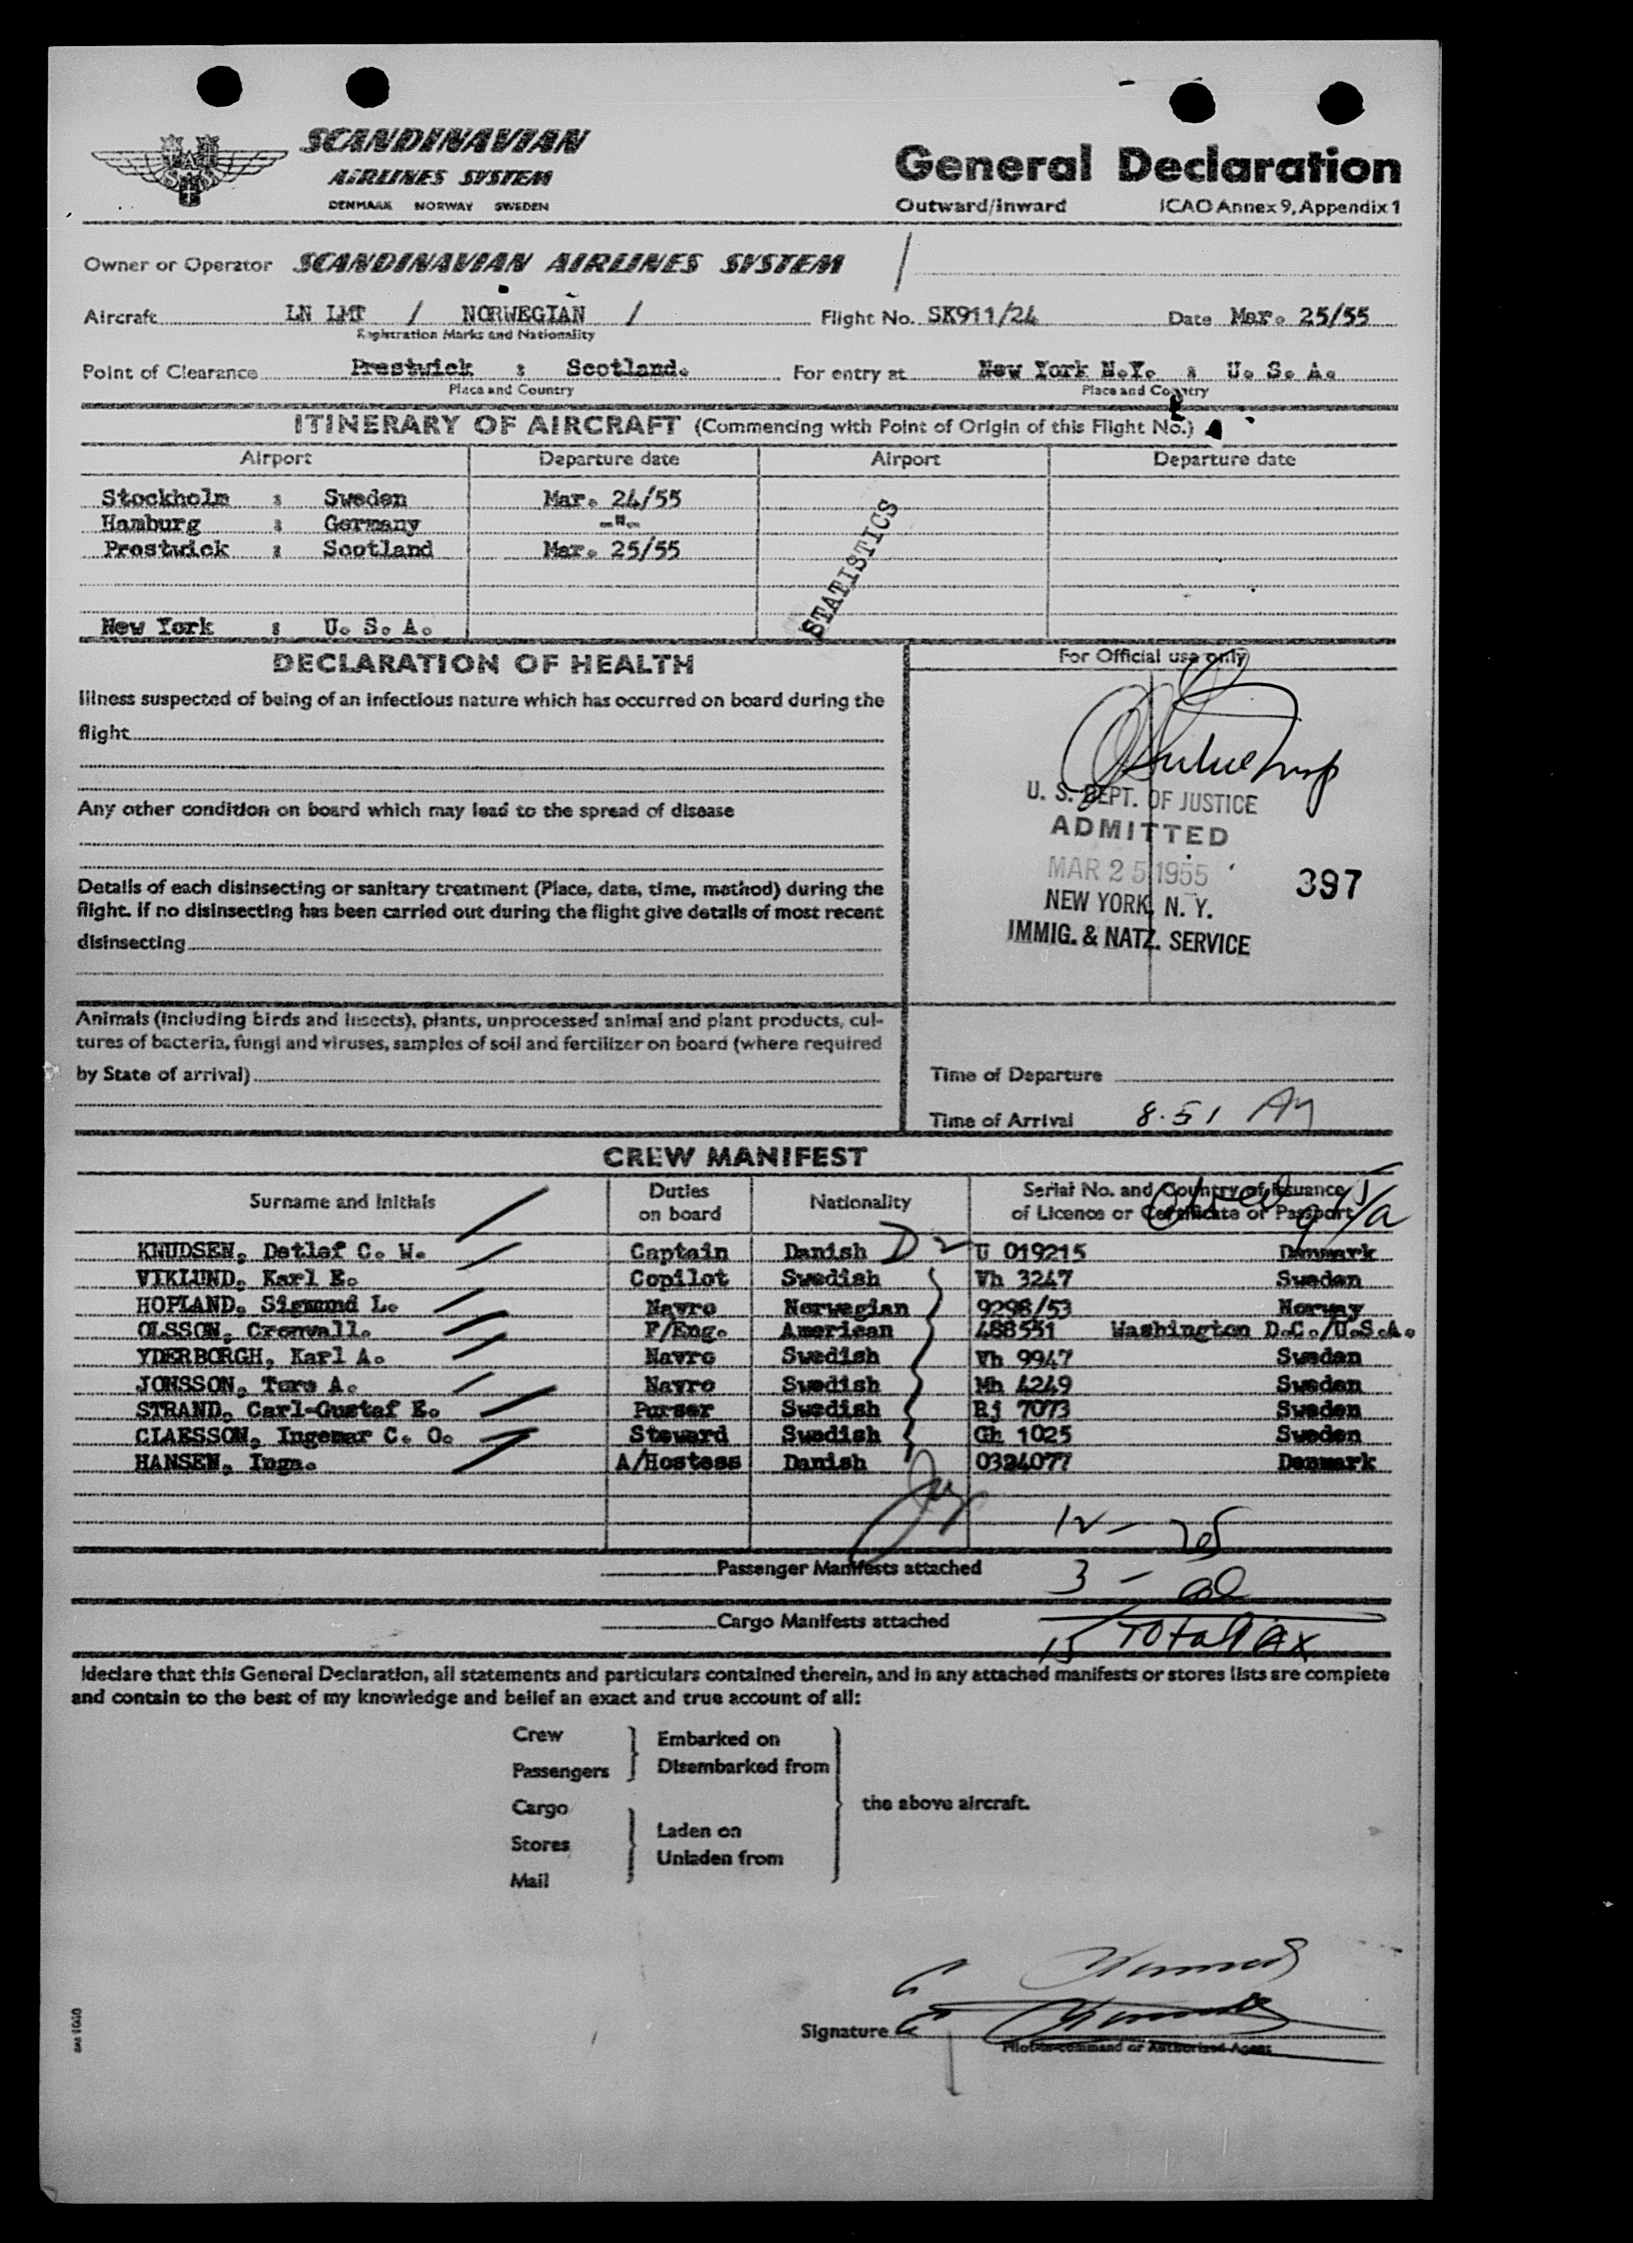 SCANDINAVIAN
AIRLINES SYSTEM
DENMARK NORWAY SWEDEN
General Declaration
Outward/Inward ICAO Annex 9, Appendix 1
Owner or Operator SCANDINAVIAN AIRLINES SYSTEM
Aircraft LN LMT / NORWEGIAN / Flight No. SK911/24 Date Mar. 25/55
Registration Marks and Nationality
Point of Clearance Prestwick : Scotland. For entry at New York N.Y. : U. S. A.
Place and Country Place and Country
ITINERARY OF AIRCRAFT (Commencing with Point of Origin of this Flight No.)
Airport Departure date Airport Departure date
Stockholm : Sweden Mar. 24/55
Hamburg : Germany -"-
Prestwick : Scotland Mar. 25/55
STATISTICS
New York : U. S. A.
DECLARATION OF HEALTH
For Official use only
Illness suspected of being of an infectious nature which has occurred on board during the
flight
Any other condition on board which may lead to the spread of disease
Details of each disinsecting or sanitary treatment (Place, date, time, method) during the
flight. If no disinsecting has been carried out during the flight give details of most recent
disinsecting
U. S. DEPT. OF JUSTICE
ADMITTED
MAR 25 1955
397
NEW YORK, N. Y.
IMMIG. & NATZ. SERVICE
Animals (including birds and insects), plants, unprocessed animal and plant products, cul-
tures of bacteria, fungi and viruses, samples of soil and fertilizer on board (where required
by State of arrival)
Time of Departure
Time of Arrival 8.51 AM
CREW MANIFEST
Surname and Initials Duties on board Nationality Serial No. and Country of Issuance of Licence or Certificate or Passport
KNUDSEN, Detlef C. W. Captain Danish D 2 U 019215 Denmark
VIKLUND, Karl E. Copilot Swedish Vh 3247 Sweden
HOPLAND, Sigmund L. Navro Norwegian 9298/53 Norway
OLSSON, Cronvall. F/Eng. American 488551 Washington D.C./U.S.A.
YDERBORGH, Karl A. Navro Swedish Vh 9947 Sweden
JONSSON, Tore A. Navro Swedish Mh 4249 Sweden
STRAND, Carl-Gustaf E. Purser Swedish Rj 7073 Sweden
CLAESSON, Ingemar C. O. Steward Swedish Gh 1025 Sweden
HANSEN, Inga. A/Hostess Danish 0324077 Denmark
12 -
Passenger Manifests attached
3 -
Cargo Manifests attached
15 Total
I declare that this General Declaration, all statements and particulars contained therein, and in any attached manifests or stores lists are complete
and contain to the best of my knowledge and belief an exact and true account of all:
Crew
Passengers
Embarked on
Disembarked from
Cargo
Stores
Mail
Laden on
Unladen from
the above aircraft.
Signature
Pilot-in-command or Authorized Agent